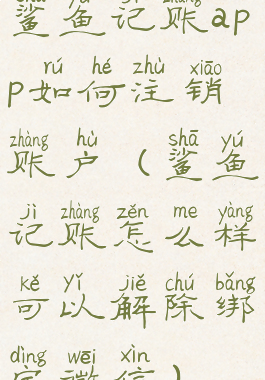 shā yú jì zhàng
鲨鱼记账ap
rú hé zhù xiāo
p如何注销
zhàng hù shā yú
账户(鲨鱼
jì zhàng zěn me yàng
记账怎么样
kě yǐ jiě chú bǎng
可以解除绑
dìng wēi xìn
定微信)